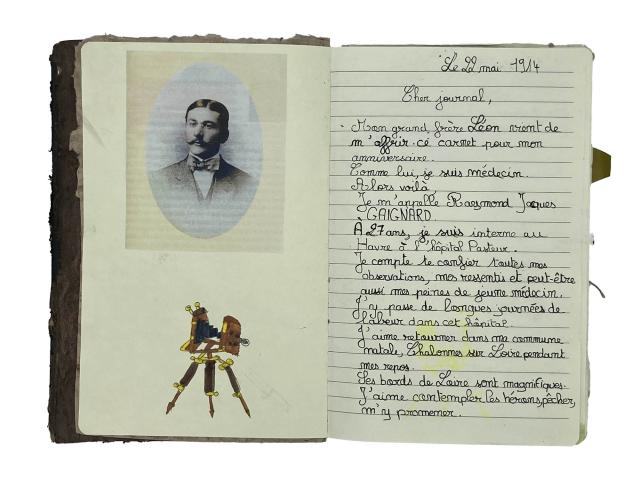 Le 22 mai 1914
Cher journal,
Mon grand frère Léon vient de
m'offrir ce carnet pour mon
anniversaire.
Comme lui, je suis médecin.
Alors voilà
Je m'appelle Raymond Jacques
GAIGNARD.
À 27 ans, je suis interne au
Havre à l'hôpital Pasteur.
Je compte te confier toutes mes
observations, mes ressentis et peut-être
aussi mes peines de jeune médecin.
J'y passe de longues journées de
labeur dans cet hôpital.
J'aime retourner dans ma commune
natale, Chalonnes sur Loire pendant
mes repos.
Les bords de Loire sont magnifiques.
J'aime contempler les hérons pêcher,
m'y promener.